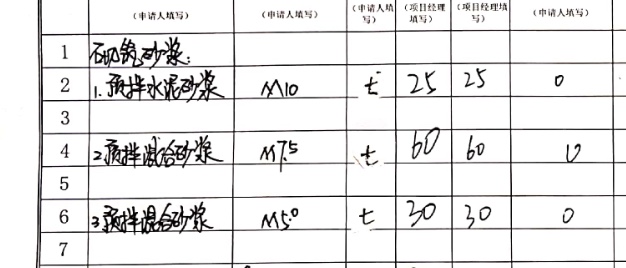 （申请人填写） （申请人填写） （申请人填写） （项目经理填写） （项目经理填写） （申请人填写）
1 砌筑砂浆:
2 1.预拌水泥砂浆 M10 t 25 25 0
3
4 2.预拌混合砂浆 M7.5 t 60 60 0
5
6 3.预拌混合砂浆 M5.0 t 30 30 0
7